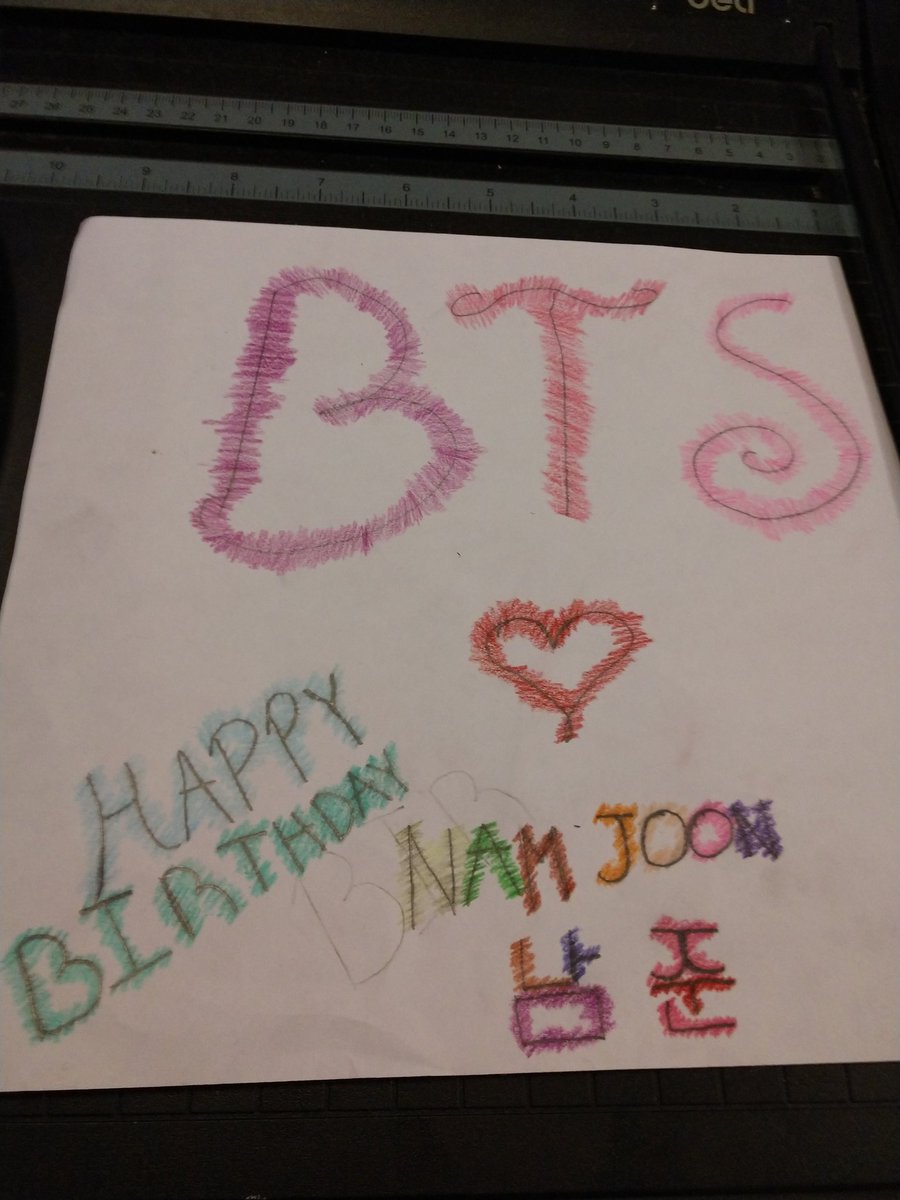 deli
27 26 25 24 23 22 21 20 19 18 17 16 15 14 13 12 11 10 9 8 7 6 5 4 3
10 9 8 7 6 5 4 3 2 1
BTS
HAPPY
BIRTHDAY
NAM JOON
남 준